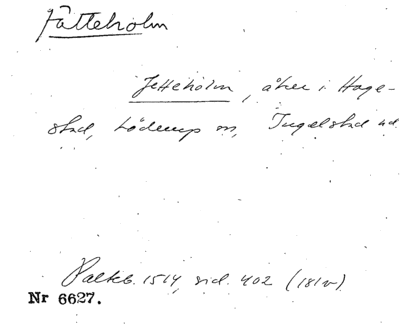 Jätteholm
Jetteholm, åker i Hage-
stad, Löderup sn, Ingelstad hd
Palteb. 1514, sid. 402 (181v).
Nr 6627.